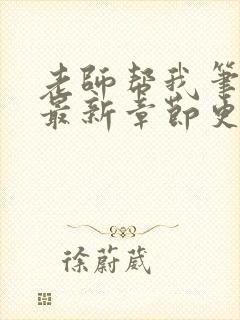 老師帮我筆
最新章節史
徐蔚葳